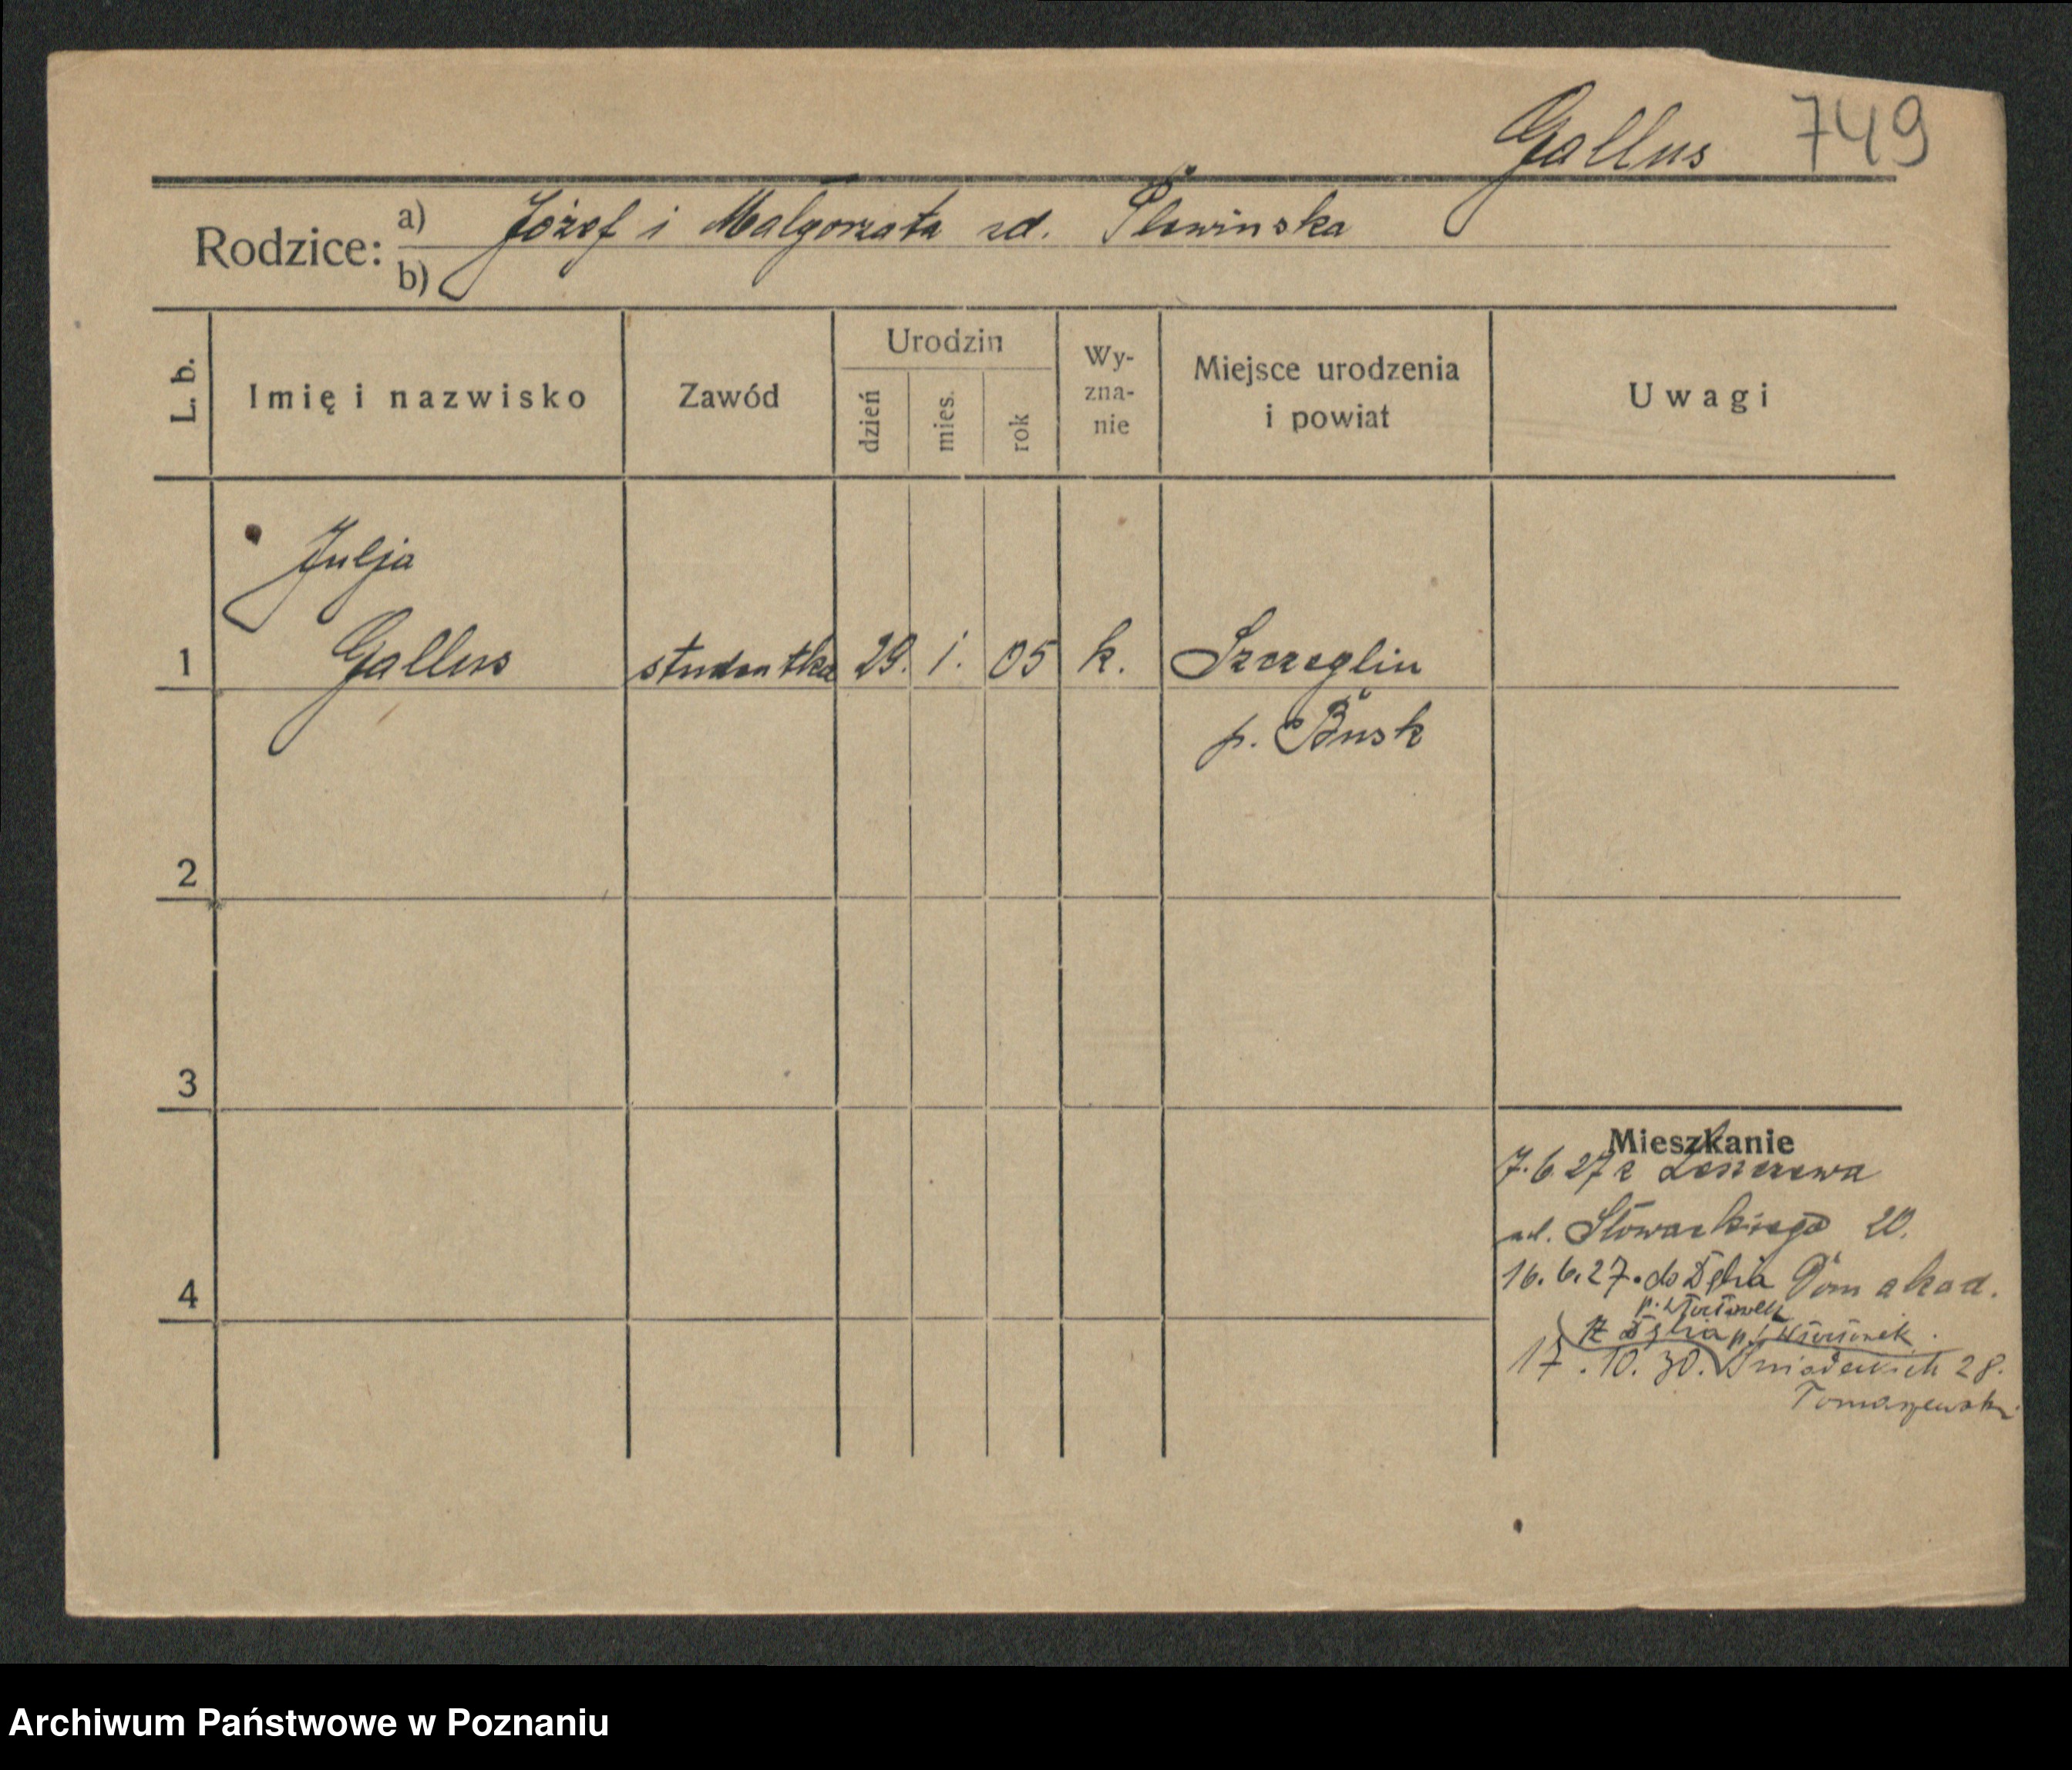 Gallus 749
Rodzice: a) Józef i Małgorzata zd. Slewinska
b)
L. b. Imię i nazwisko Zawód Urodzin dzień mies. rok Wy-zna-nie Miejsce urodzenia i powiat Uwagi
Julja
1 Gallus studentka 29. 1. 05 k. Szczeglin
p. Busk
2
3
Mieszkanie
7.6.27 z
ul. Słowackiego 20.
4 16.6.27. do Dębia Dom akad.
p. Włocławek
z Dębia p.
17.10.30. Śniadeckich 28.
Tomaszewski
Archiwum Państwowe w Poznaniu